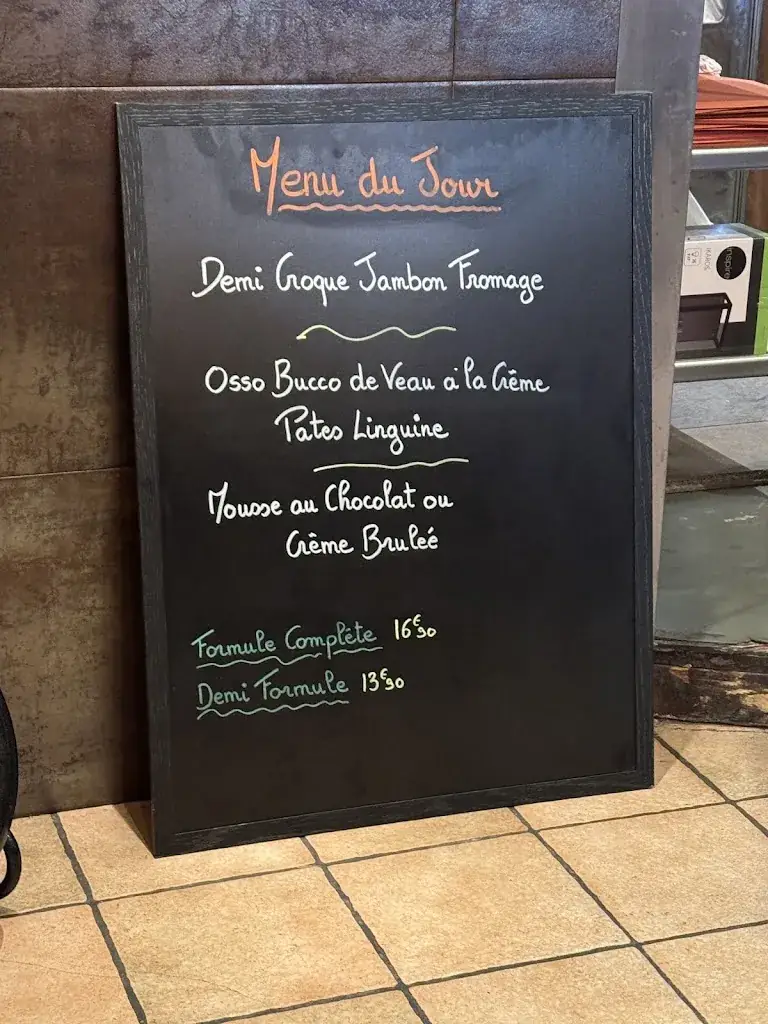 Menu du Jour
Demi Croque Jambon Fromage
Osso Bucco de Veau à la Crème
Pates Linguine
Mousse au Chocolat ou
Crème Bruleé
Formule Complète 16€90
Demi Formule 13€90
inspire